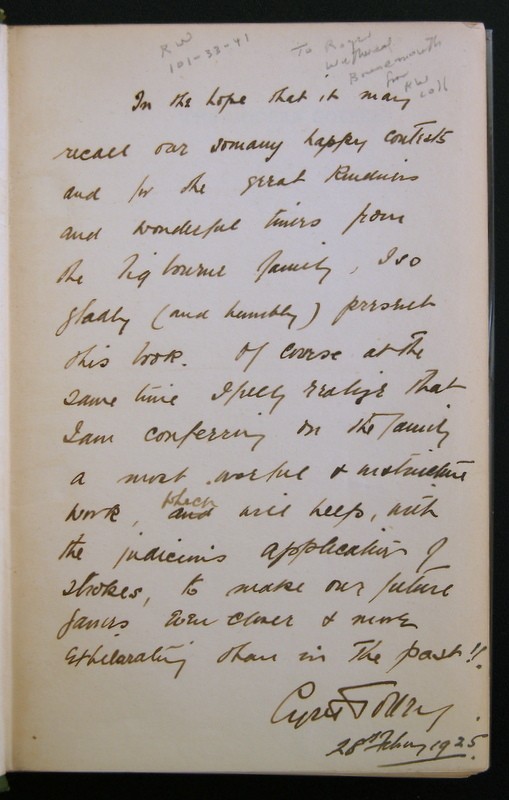 RW
101-33-41
To Roger
Wethered
Bournemouth
from
RW
coll
In the hope that it may
recall our somany happy contests
and for the great kindness
and wonderful times from
the Pigbourne family, I so
gladly (and humbly) present
this book. Of course at the
same time I fully realize that
I am conferring on the family
a most useful & instructive
work, and which will help, with
the judicious application of
strokes, to make our future
games even closer & more
exhilarating than in the past!!
Cyril Tolley.
28th Febury 1925.